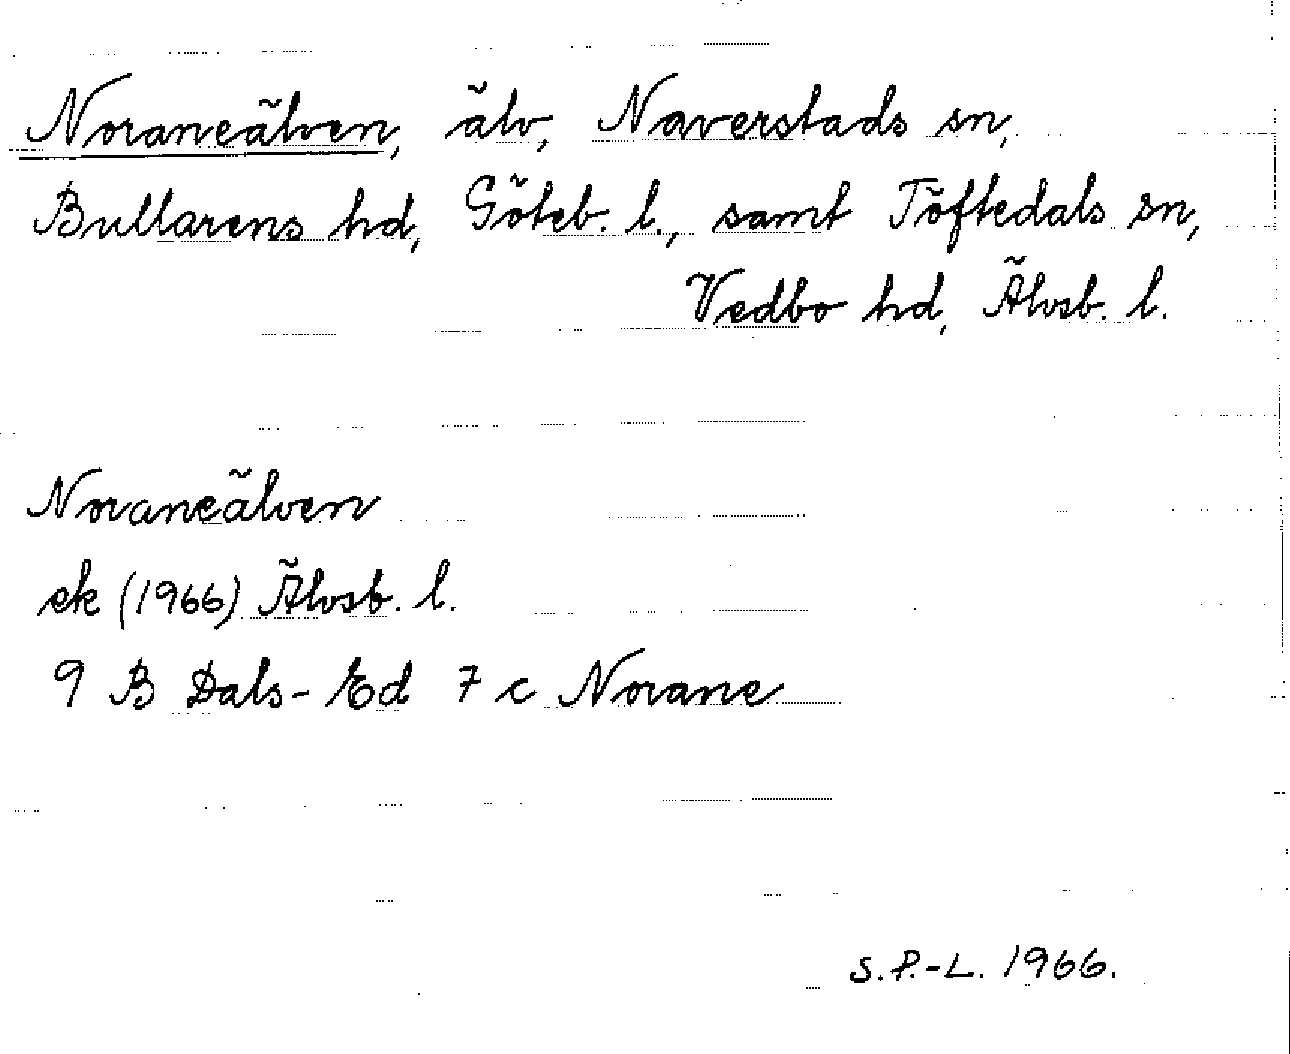 Noraneälven, älv, Naverstads sn,
Bullarens hd, Göteb. l., samt Töftedals sn,
Vedbo hd, Älvsb. l.
Noraneälven
ek (1966) Älvsb. l.
9 B Dals-Ed 7 c Norane
S.P.-L. 1966.